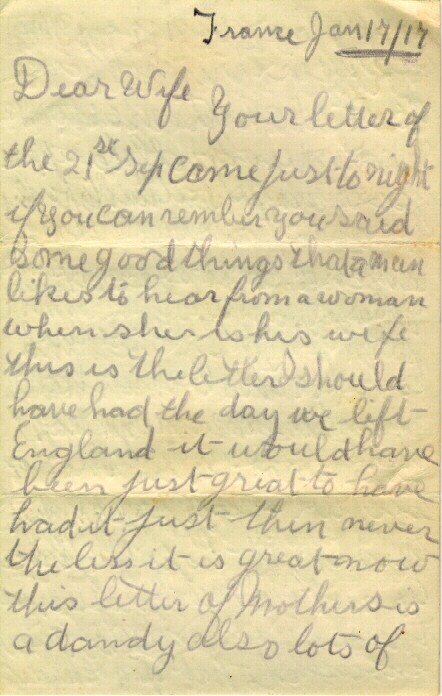 France Jan 17/17
Dear Wife Your letter of
the 21st Sep came just to night
if you can rember you said
some good things that a man
likes to hear from a woman
when she is his wife
this is the letter I should
have had the day we left
England it would have
been just great to have
had it just then never
the less it is great now
this letter of Mothers is
a dandy also lots of